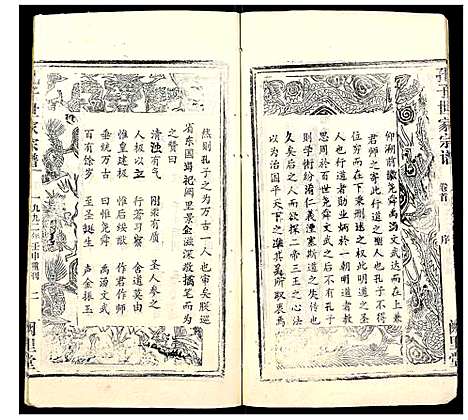 孔子世家宗谱
卷首
序
阙里堂
仰溯前徽尧舜禹汤文武达而在上兼
君师之寄此行道之圣人也孔子不得
位穷而在下秉删述之权此明道之圣
人也行道者勋业炳于一朝明道者教
思周於百世尧舜文武之后不有孔子
则学术纷淆仁义湮塞斯道之失传也
久矣后之人而欲探二帝三王之心法
以为治国平天下之准其奚所取衷焉
然则孔子之为万古一人也审矣朕巡
省东国谒祀阙里景企滋深敬摛笔而为
之赞曰
清浊有气 刚柔有质 圣人参之
人极以立 行著习察 舍道莫由
惟皇建极 惟后绥猷 作君作师
垂统万古 曰惟尧舜 禹汤文武
百有余岁 至圣诞生 声金振玉
孔子世家宗谱
一九九二年壬申重刊
二
阙里堂